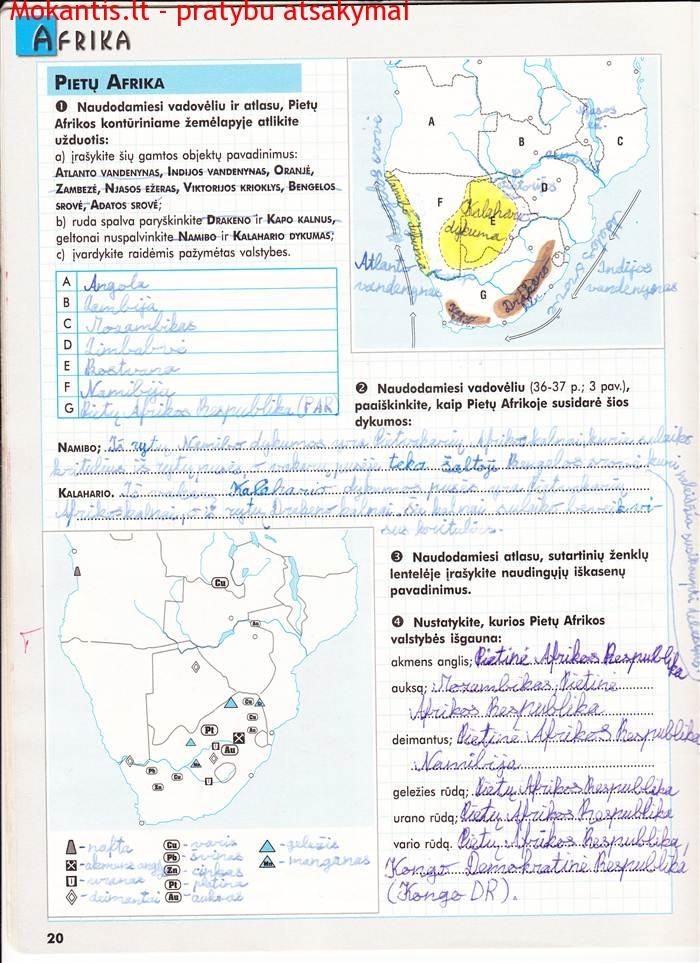 Mokantis.lt - pratybu atsakymai
AFRIKA
PIETŲ AFRIKA
❶ Naudodamiesi vadovėliu ir atlasu, Pietų
Afrikos kontūriniame žemėlapyje atlikite
užduotis:
a) įrašykite šių gamtos objektų pavadinimus:
ATLANTO VANDENYNAS, INDIJOS VANDENYNAS, ORANJĖ,
ZAMBEZĖ, NJASOS EŽERAS, VIKTORIJOS KRIOKLYS, BENGELOS
SROVĖ, ADATOS SROVĖ;
b) ruda spalva paryškinkite DRAKENO ir KAPO KALNUS,
geltonai nuspalvinkite NAMIBO ir KALAHARIO DYKUMAS;
c) įvardykite raidėmis pažymėtas valstybes.
A Angola
B Zambija
C Mozambikas
D Zimbabvė
E Bostvana
F Namibija
G Pietų Afrikos Respublika (PAR)
A
B
C
D
E
F
G
Njasos
ež.
Kalahario
dykuma
Namibo dykuma
Atlanto
vandenynas
Indijos
vandenynas
Drakeno
Kapo
❷ Naudodamiesi vadovėliu (36-37 p.; 3 pav.),
paaiškinkite, kaip Pietų Afrikoje susidarė šios
dykumos:
NAMIBO; Iš rytų Namibo dykumos yra Pietvakarių Afrikos kalnai, kurie sulaiko
kritulius iš rytų pusės, o vakarų pusėje teka šaltoji Bengelos srovė, kuri
KALAHARIO. Iš vakarų Kalahario dykumos pusės yra Pietvakarių
Afrikos kalnai, o iš rytų Drakeno kalnai. Šie kalnai sulaiko beveik vi-
sus kritulius.
❸ Naudodamiesi atlasu, sutartinių ženklų
lentelėje įrašykite naudingųjų iškasenų
pavadinimus.
❹ Nustatykite, kurios Pietų Afrikos
valstybės išgauna:
akmens anglis; Pietinė Afrikos Respublika
auksą; Mozambikas, Pietinė
Afrikos Respublika
deimantus; Pietinė Afrikos Respublika
Namibija
geležies rūdą; Pietų Afrikos Respublika
urano rūdą; Pietų Afrikos Respublika
vario rūdą. Pietų Afrikos Respublika,
Kongo Demokratinė Respublika
(Kongo DR).
Cu
Au
Pt
Au
Pb
Zn
Cu
U
- nafta
- akmens anglis
U - uranas
- deimantai
Cu - varis
Pb - švinas
Zn - cinkas
Pt - platina
Au - auksas
- geležis
Mn - manganas
20